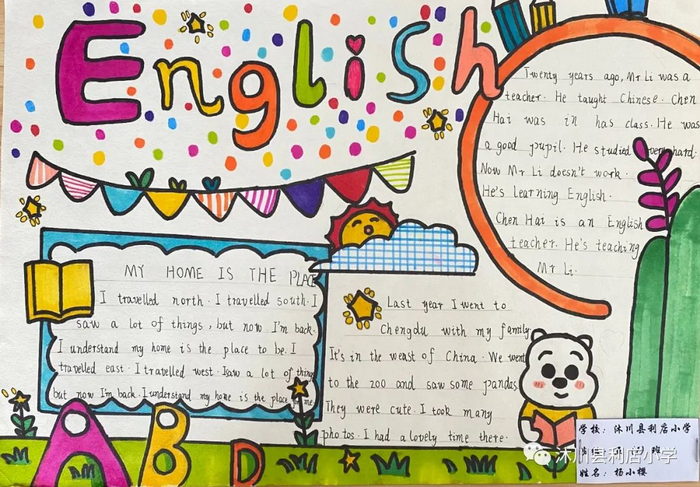 English
Twenty years ago, Mr Li was a
teacher. He taught Chinese. Chen
Hai was in has class. He was
a good pupil. He studied very hard.
Now Mr Li doesn't work.
He's Learning English.
Chen Hai is an English
teacher. He's teaching
Mr Li.
MY HOME IS THE PLACE
I travelled north. I travelled south. I
saw a lot of things, but now I'm back.
I understand my home is the place to be. I
travelled east. I travelled west. I saw a lot of things
but now I'm back. I understand my home is the place
Last year I went to
Chengdu with my family
It's in the weast of China. We went
to the zoo and saw some pandas.
They were cute. I took many
photos. I had a lovely time there.
A B D
学校：沐川县利店小学
班
姓名：杨小樱
沐川县利店小学